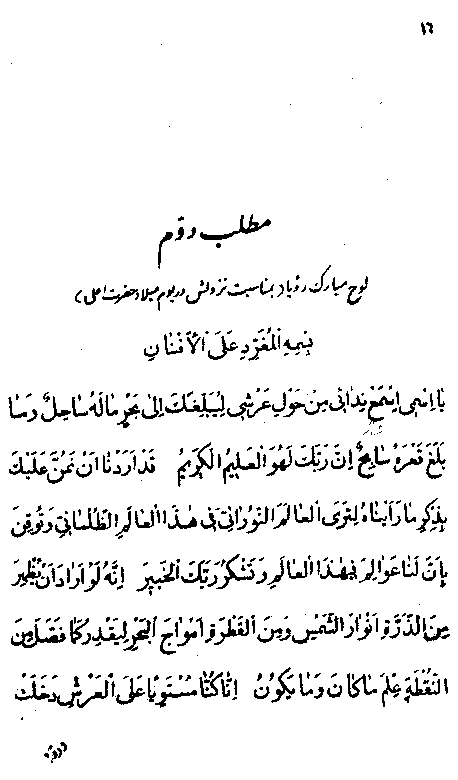 ١٦
مطلب دوّم
لوح مبارک رؤیا (بمناسبت نزولش در یوم میلاد حضرت اعلی)
بِسْمِهِ الْمُغَرِّدِ عَلَی الْأَفْنَانِ
یَا اِسْمِی اِسْتَمِعْ نِدَائِی مِنْ حَوْلِ عَرْشِی لِیُبَلِّغَكَ اِلیٰ بَحْرٍ مَا لَهُ سَاحِلٌ وَمَا
بَلَغَ قَعْرَهُ سَابِحٌ اِنَّ رَبَّكَ لَهُوَ الْعَلِیمُ الْكَرِیمُ قَدْ اَرَدْنَا اَنْ نَمُنَّ عَلَیْكَ
بِذِكْرِ مَا رَاَیْنَاهُ لِتَرَی الْعَالَمَ النَّورَانِیَّ فی هٰذَا الْعَالَمِ الظُّلْمَانِیِّ وَتُوقِنَ
بِاَنَّ لَنَا عَوَالِمَ فِیهٰذَا الْعَالَمِ وَتَشْكُرَ رَبَّكَ الْخَبِیرَ اِنَّهُ لَوْ اَرَادَ اَنْ یُظْهِرَ
مِنَ الذَّرَّةِ اَنْوَارَ الشَّمْسِ وَمِنَ الْقَطْرَةِ اَمْوَاجَ الْبَحْرِ لَیَقْدِرُ كَمَا فَصَّلَ مِنَ
النُّقْطَةِ عِلْمَ مَا كَانَ وَمَا یَكُونُ اِنَّا كُنَّا مُسْتَوِیًا عَلَی الْعَرْشِ دَخَلَتْ